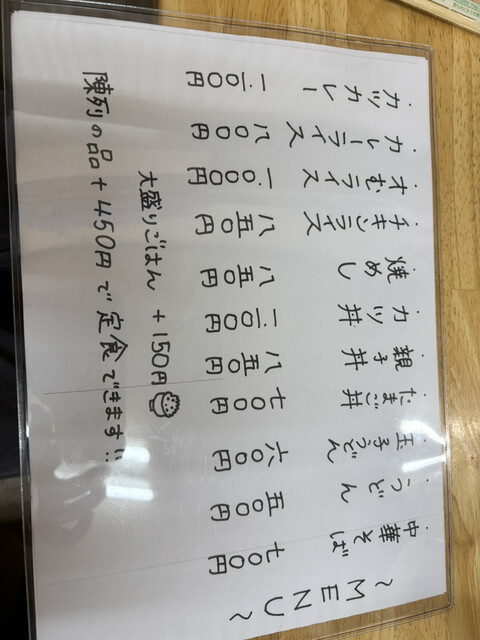 ~MENU~
・中華そば 七〇〇円
・うどん 五〇〇円
・玉子うどん 六〇〇円
・たまご丼 七〇〇円
・親子丼 八五〇円
・カツ丼
・焼めし 八五〇円
・チキンライス 八五〇円
・オむライス 一.〇〇〇円
・カレーライス 八〇〇円
・カツカレー
大盛りごはん +150円
陳列の品+450円で定食できます!!